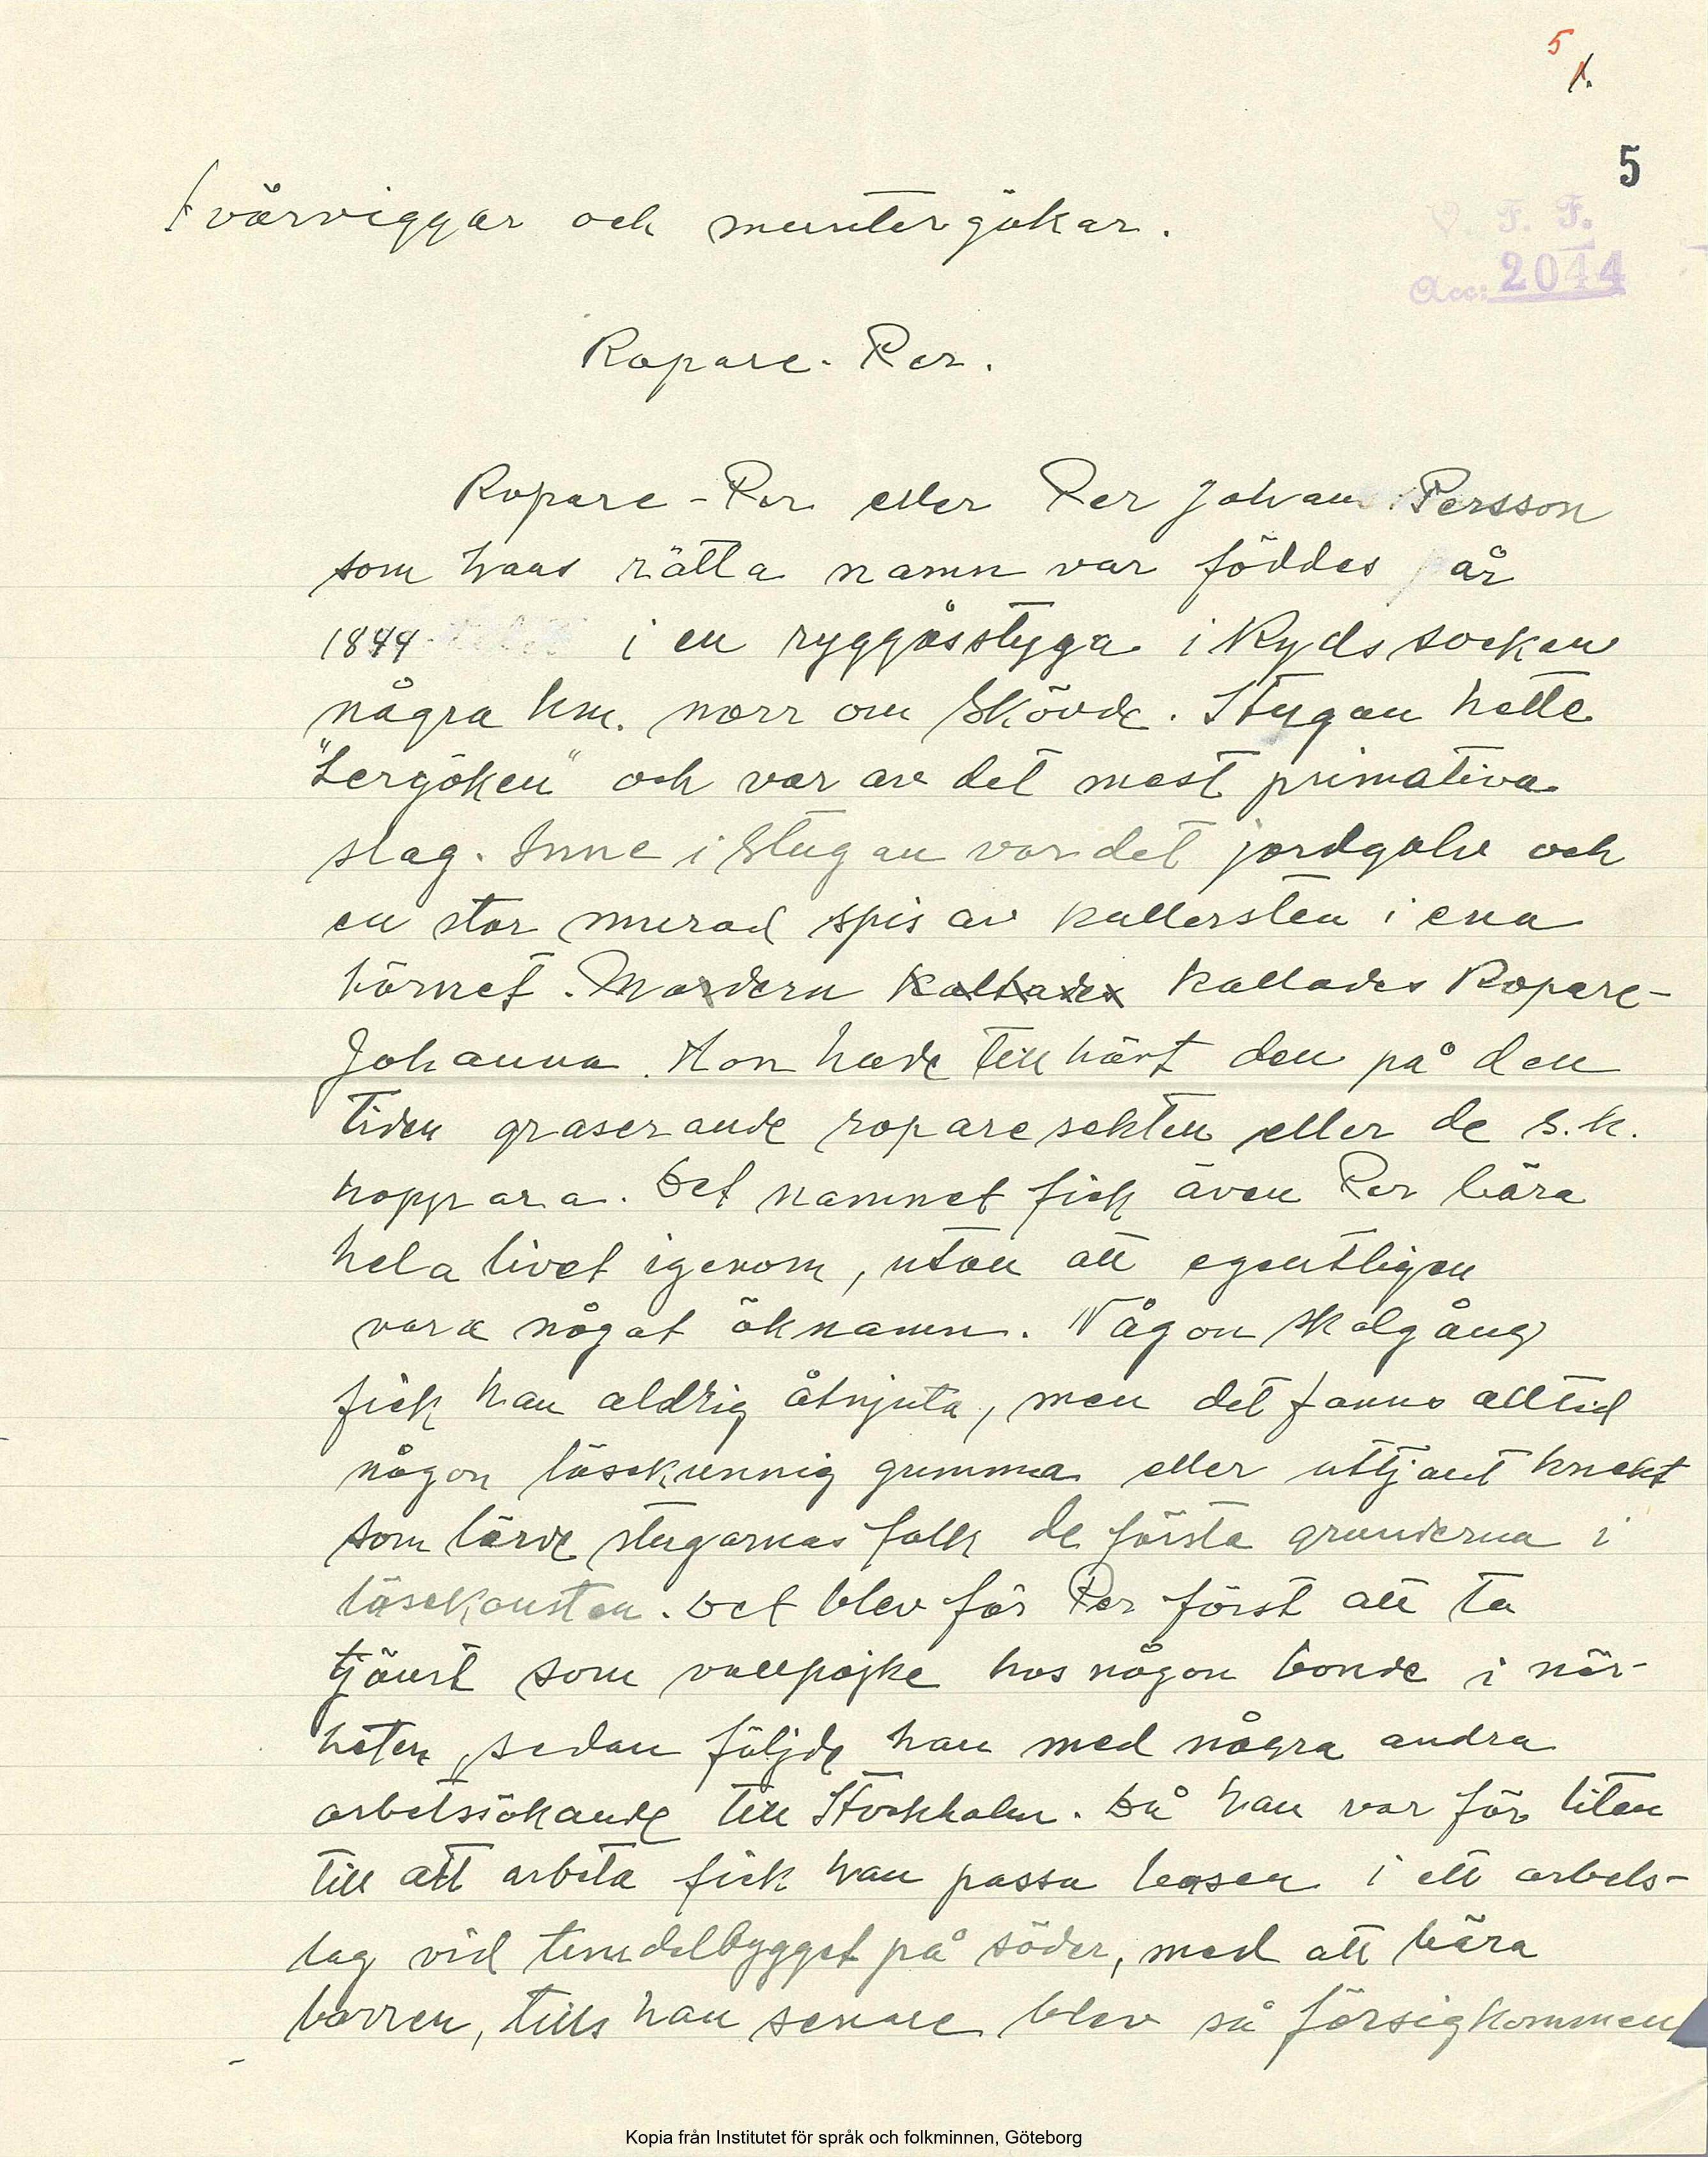 5
1.
5
Tvärviggar och muntergökar.
V. F. F.
Acc: 2044
Ropare-Per.
Ropare-Per eller Per Johan Persson
som hans rätta namn var föddes år
1844 i en ryggåsstyga i Ryds socken
några km. norr om Skövde. Stygan hette
"Lergöken" och var av det mest primativa
slag. Inne i stugan var det jordgolv och
en stor murad spis av kullersten i ena
hörnet. Modern kallades kallades Ropare-
Johanna. Hon hade till hört den på den
tiden graserande roparesekten eller de s.k.
hoppara. Det namnet fick även Per bära
hela livet igenom, utan att egentligen
vara något öknamn. Någon skolgång
fick han aldrig åtnjuta, men det fanns alltid
någon läsekunnig gumma eller uttjänt knekt
som lärde stugornas folk de första grunderna i
läsekonsten. Det blev för Per först att ta
tjänst som vallpojke hos någon bonde i när-
heten, sedan följde han med några andra
arbetssökande till Stockholm. Då han var för liten
till att arbeta fick han passa basen i ett arbets-
lag vid tunnelbygget på söder, med att bära
borren, tills han senare blev så försigkommen
Kopia från Institutet för språk och folkminnen, Göteborg